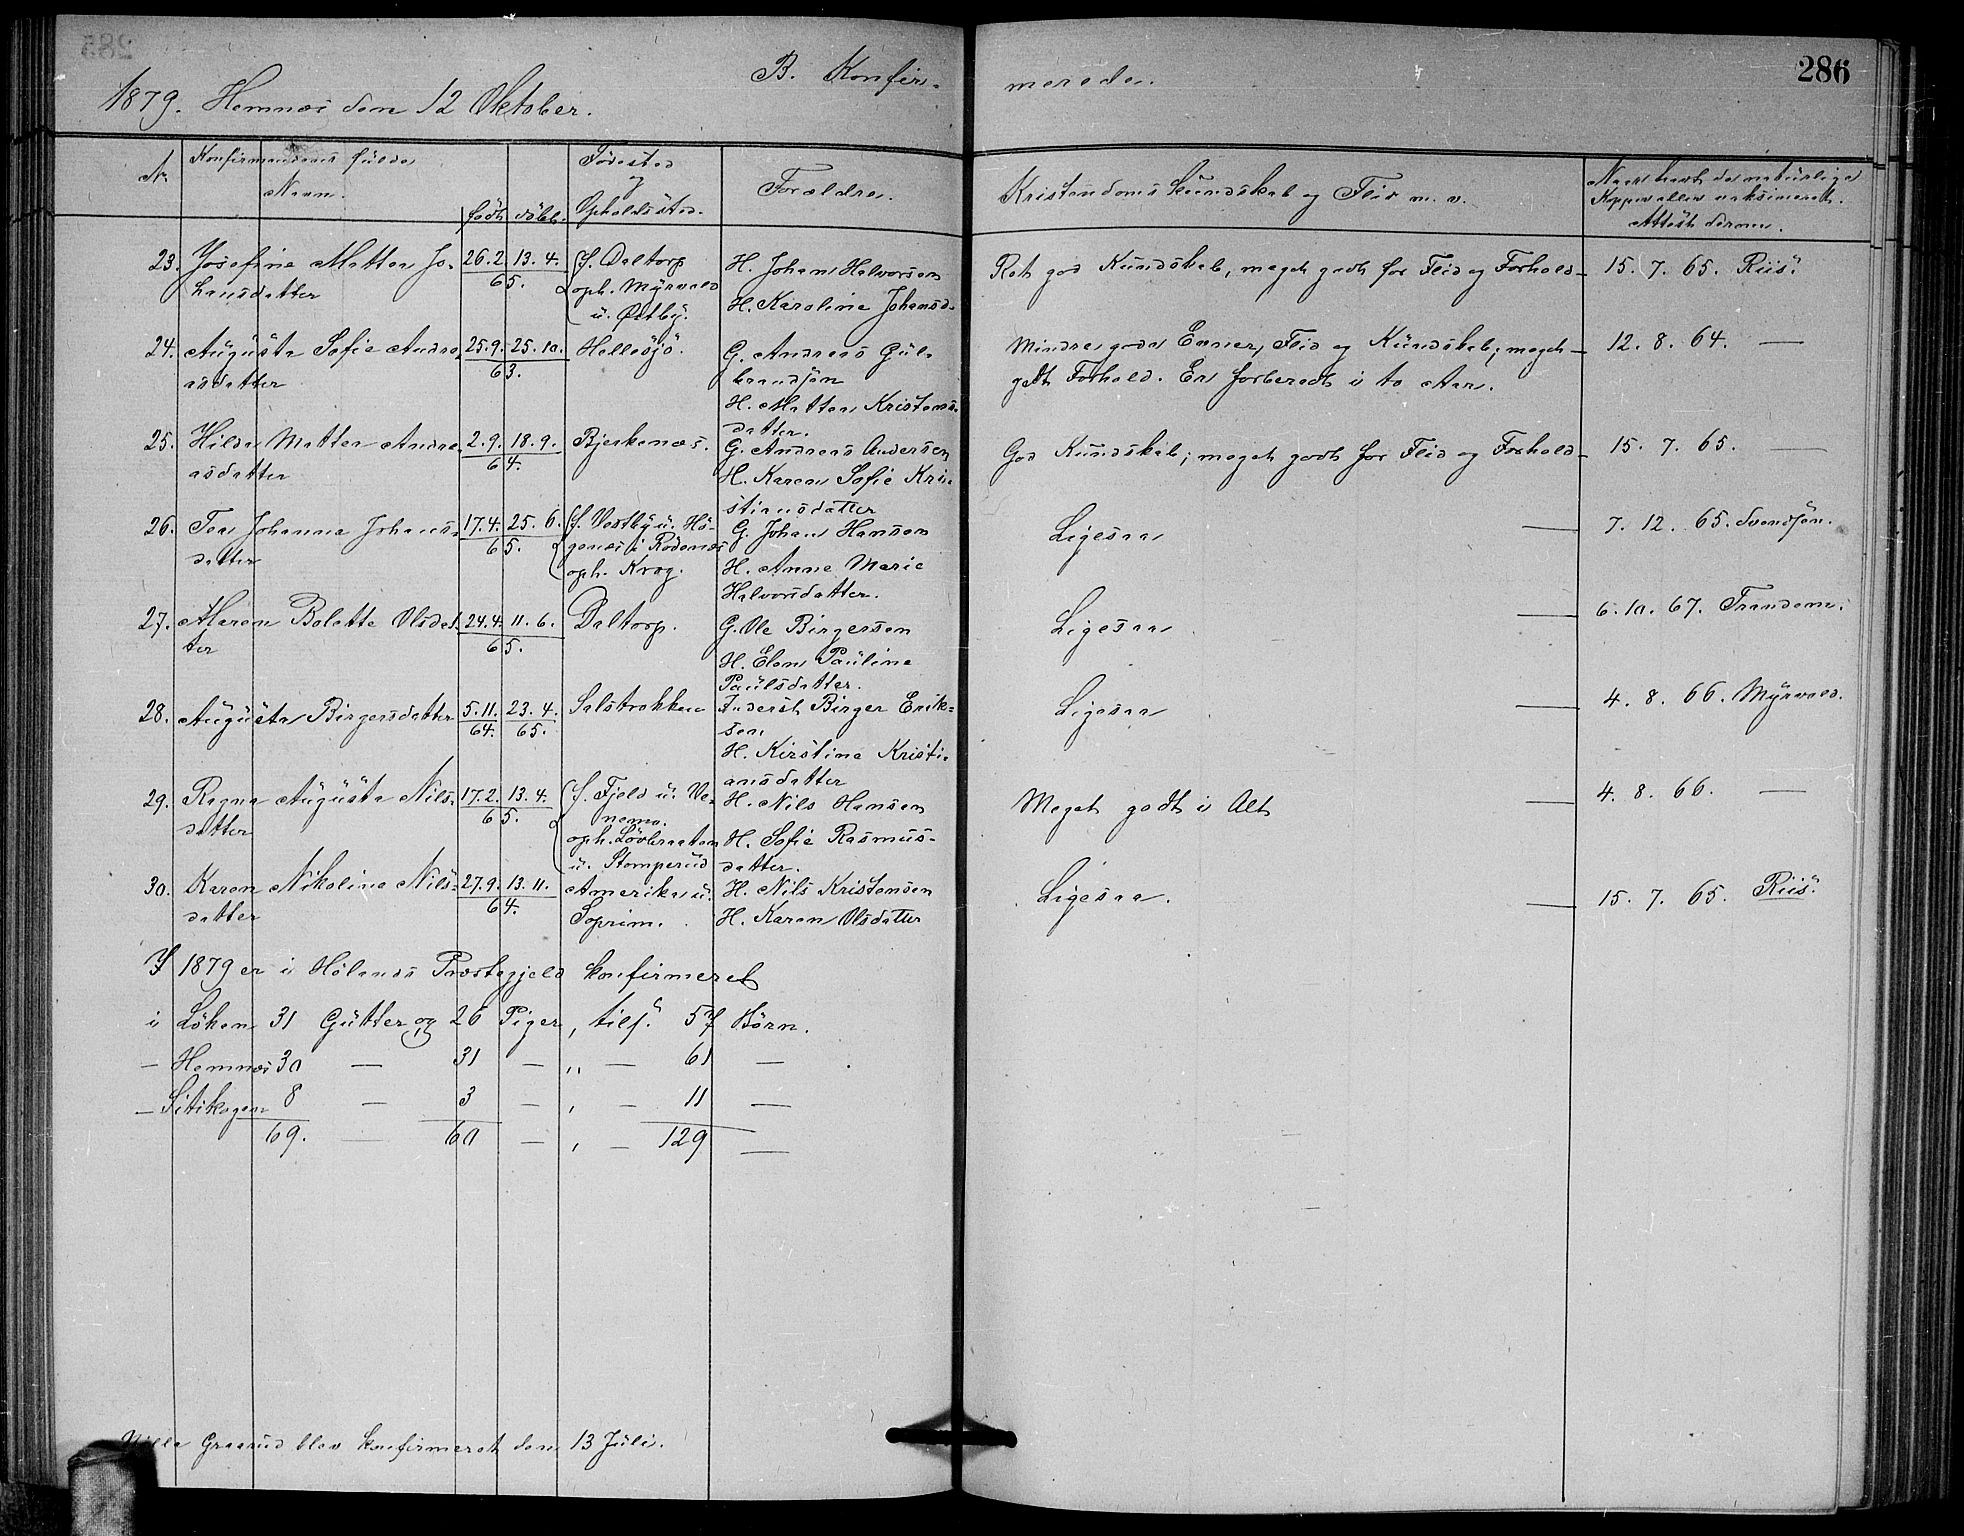 286
B. Konfir-
merede.
1879. Hemnæs den 12 Oktober.
No
Konfirmandens fulde
Navn.
født
döbt.
Fødested
og
Opholdssted.
Forældre.
Kristendomskundskab og Flid m. v.
Naar havt de naturlige
Kopper eller vaksineret.
Attest derom.
23. Josefine Mathea Jo-
hansdatter
26.2. 13.4.
65.
f. Daltorp
oph. Myrvold
u. Østby.
H. Johan Halvorsen
H. Karoline Johansd.
Ret god Kundskab, meget godt for Flid og Forhold — 15. 7. 65. Riis.
24. Augusta Sofie Andre-
asdatter
25.9. 25.10.
63.
Hellesjö.
G. Andreas Gul-
brandsen
H. Mathea Kristens-
datter.
Mindre gode Evner, Flid og Kundskab; meget — 12. 8. 64. —
godt Forhold. Er forberedt i to Aar.
25. Hilda Mathea Andre-
asdatter
2.9. 18.9.
64.
Bjerkenæs.
G. Andreas Andersen
H. Karen Sofie Kri-
stiansdatter
God Kundskab; meget godt for Flid og Forhold — 15. 7. 65. —
26. Tea Johanne Johans-
datter
17.4. 25.6.
65.
f. Vestby u. Hö-
genes i Rödenæs
oph. Krog.
G. Johan Hansen
H. Anne Marie
Halvorsdatter.
Ligesaa — 7. 12. 65. Svendsen.
27. Maren Bolette Olsdat-
ter
24.4. 11.6.
65.
Daltorp.
G. Ole Birgersen
H. Elen Pauline
Paulsdatter.
Ligesaa — 6. 10. 67. Trandem.
28. Augusta Birgersdatter
5.11. 23.4.
64. 65.
Salstrokken
Inderst Birger Erik-
sen
H. Kirstine Kristi-
ansdatter
Ligesaa — 4. 8. 66. Myrvold.
29. Ragna Augusta Nils-
datter
17.2. 13.4.
65.
f. Fjeld u. Ve-
nemo.
oph. Lövbraaten
u. Stomperud
H. Nils Hansen
H. Sofie Rasmus-
datter.
Meget godt i Alt — 4. 8. 66. —
30. Karen Nikoline Nils-
datter
27.9. 13.11.
64.
Amerika u.
Soprim.
H. Nils Kristensen
H. Karen Olsdatter
Ligesaa. — 15. 7. 65. Riis.
I 1879 er i Hølands Præstegjeld konfirmeret
i Löken 31 Gutter og 26 Piger, tils. 57 Börn.
— Hemnæs 30 — 31 — „ — 61 —
— Sitskogen 8 — 3 — „ — 11 —
69. — 60 — „ — 129 —
Graarud blev konfirmeret den 13 Juli.